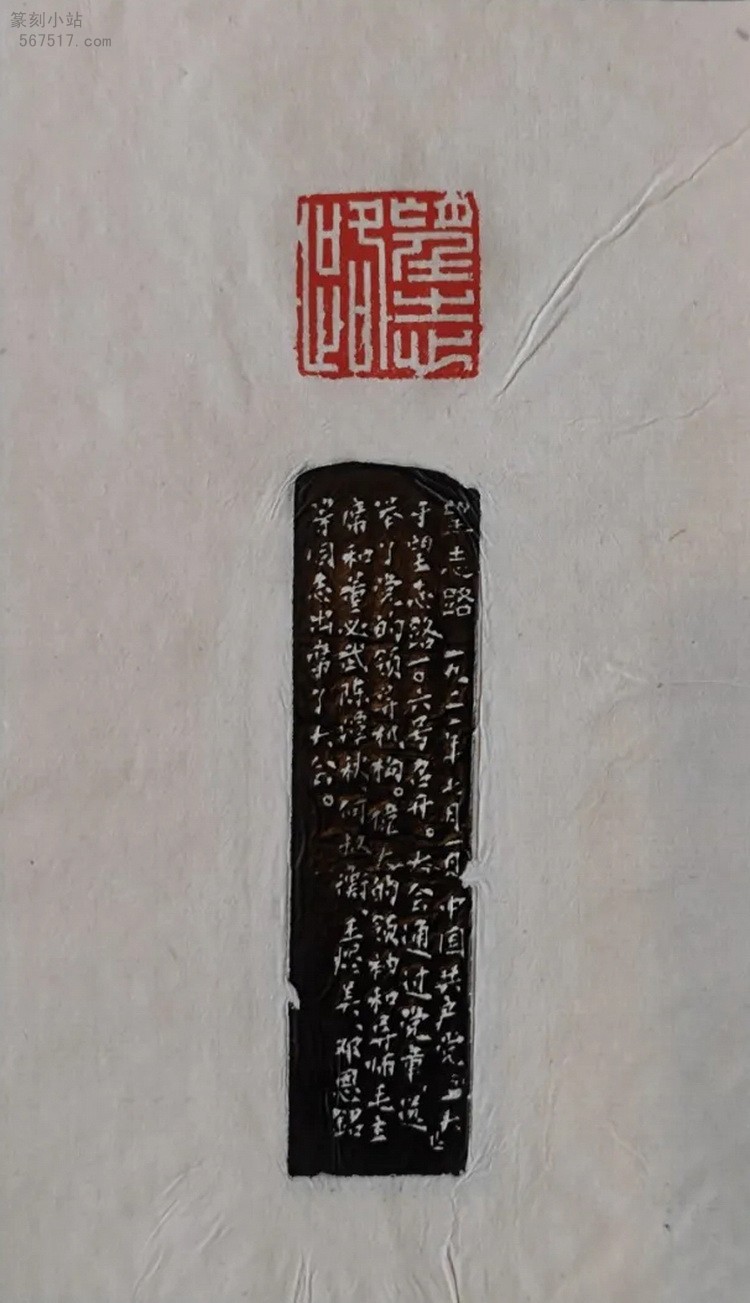 篆刻小站
567517.com
望志路
望志路 一九二一年七月一日中国共产党
于望志路一〇六号召开。大会通过党章、选
举了党的领导机构。伟大的领袖和导师毛主
席和董必武陈潭秋、何叔衡、王烬美、邓恩铭
等同志出席了大会。